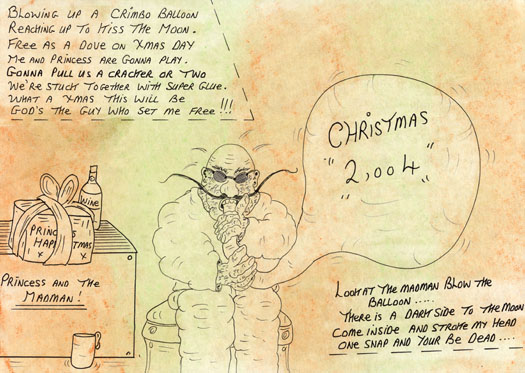 Blowing up a Crimbo Balloon
Reaching up to Kiss The Moon.
Free as a Dove on Xmas Day
Me and Princess are Gonna Play.
Gonna Pull us a Cracker or Two
We're stuck together with Super Glue.
What a Xmas This Will Be
God's the Guy Who Set me Free!!!
CHRISTMAS
"2,004"
WINE
PRINC S
HAP TMAS
x
Princess and the
Madman!
Look at the madman Blow the
Balloon....
There is a Dark Side To the Moon
Come inside and stroke my Head
One snap and your Be Dead....